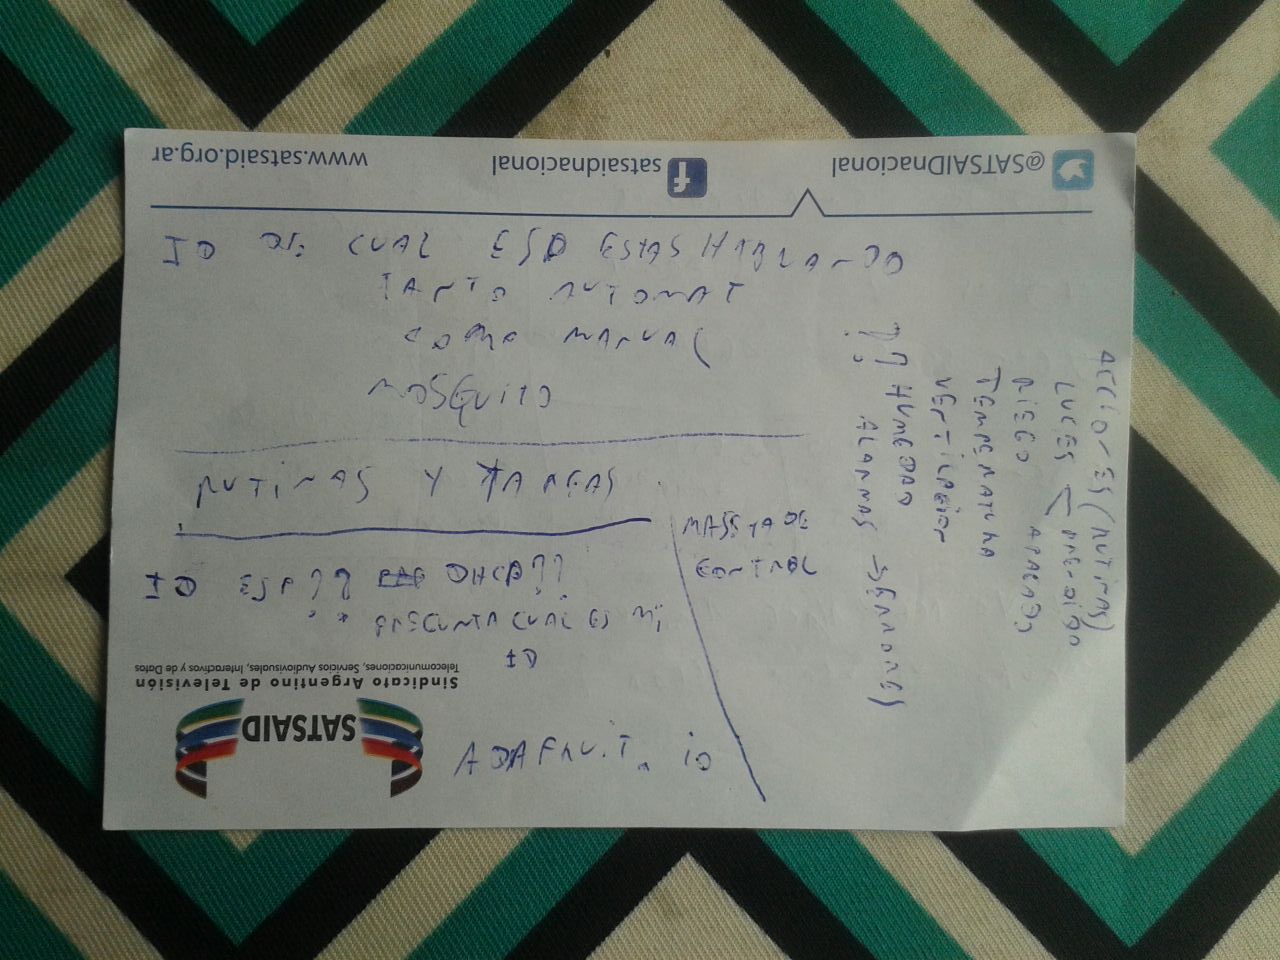 @SATSAIDnacional
satsaidnacional
www.satsaid.org.ar
ID DE CUAL ESP ESTAS HABLANDO
TANTO AUTOMAT
COMO MANUAL
MOSQUITO
RUTINAS Y TAREAS
ID ESP?? DHCP??
* PREGUNTA CUAL ES MI
ID
MASSTA DE
CONTROL
ADAFRUIT. io
ACCIONES (RUTINAS)
LUCES < PRENDIDO
APAGADO
RIEGO
TEMPERATURA
VENTILACION
?? HUMEDAD
ALARMAS → SENSORES
Sindicato Argentino de Televisión
Telecomunicaciones, Servicios Audiovisuales, Interactivos y de Datos
SATSAID